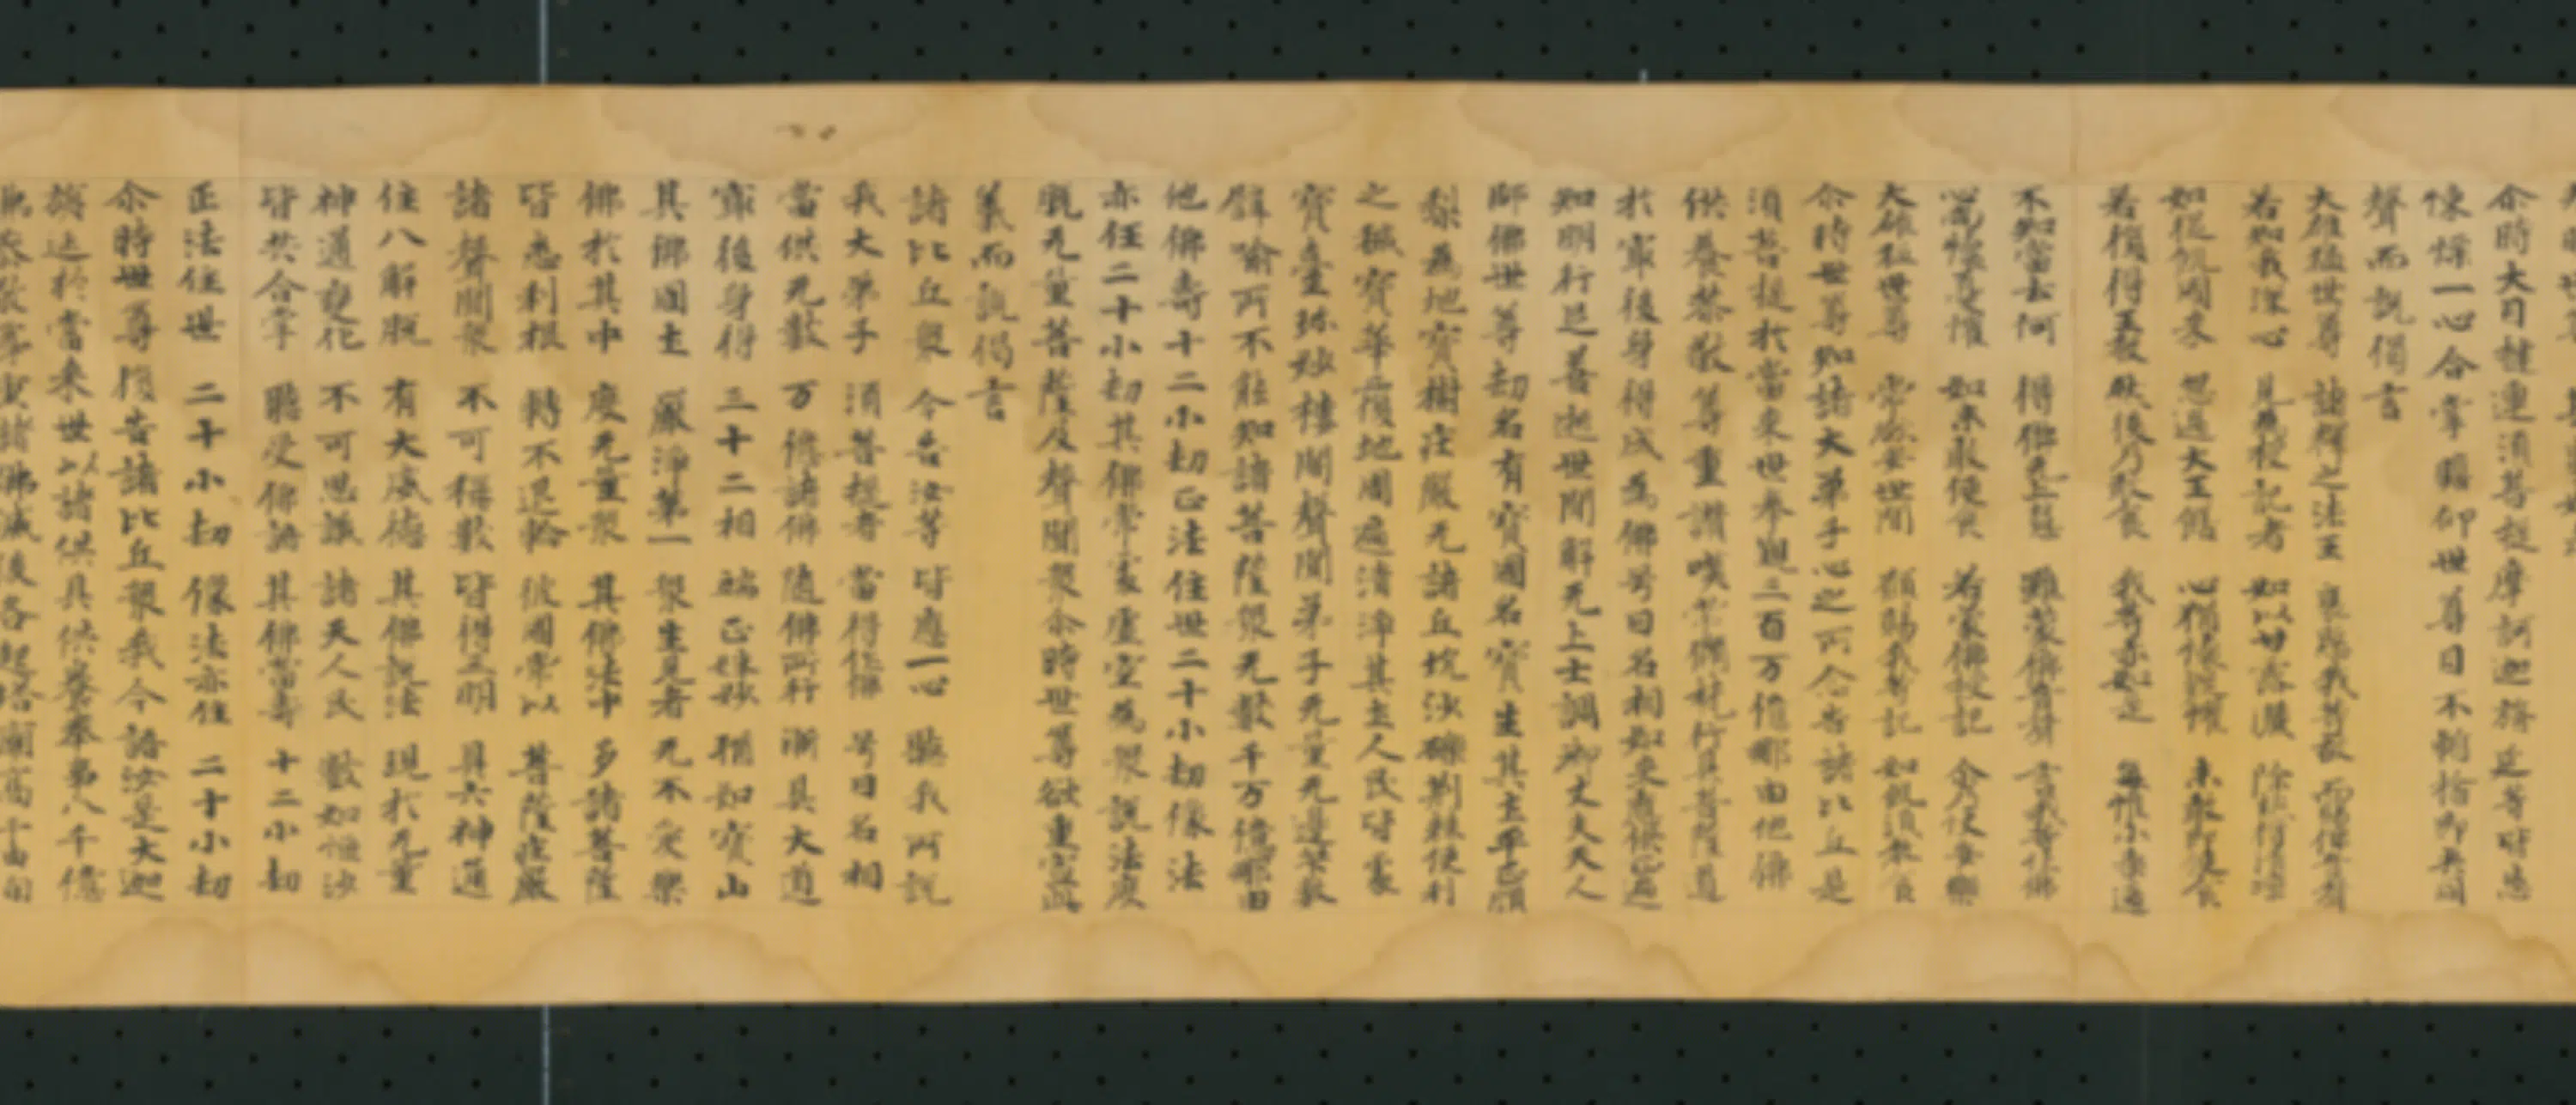 尒時大目揵連須菩提摩訶迦旃延等皆悉
悚慄一心合掌瞻仰世尊目不暫捨即共同
聲而說偈言
大雄猛世尊 諸釋之法王 哀愍我等故 而賜佛音聲
若知我深心 見為授記者 如以甘露灑 除熱得清涼
如從飢國來 忽遇大王饍 心猶懷疑懼 未敢即便食
若復得王教 然後乃敢食 我等亦如是 每惟小乘過
不知當云何 得佛无上慧 雖聞佛音聲 言我等作佛
心尚懷憂懼 如未敢便食 若蒙佛授記 尒乃快安樂
大雄猛世尊 常欲安世間 願賜我等記 如飢須教食
尒時世尊知諸大弟子心之所念告諸比丘是
須菩提於當來世奉覲三百万億那由他佛
供養恭敬尊重讚嘆常脩梵行具菩薩道
於寂後身得成為佛号曰名相如來應供正遍
知明行足善逝世間解无上士調御丈夫天人
師佛世尊劫名有寶國名寶生其土平正頗
梨為地寶樹庄嚴无諸丘坑沙礫荆棘便利
之穢寶華覆地周遍清淨其土人民皆處
寶臺珎妙樓閣聲聞弟子无量无邊筭數
譬喻所不能知諸菩薩眾无數千万億那由
他佛壽十二小劫正法住世二十小劫像法
亦住二十小劫其佛常處虛空為眾說法度
脫无量菩薩及聲聞眾尒時世尊欲重宣此
義而說偈言
諸比丘眾 今告汝等 皆應一心 聽我所說
我大弟子 須菩提者 當得作佛 号曰名相
當供无數 万億諸佛 隨佛所行 漸具大道
寂後身得 三十二相 端正姝妙 猶如寶山
其佛國土 嚴淨第一 眾生見者 无不愛樂
佛於其中 度无量眾 其佛法中 多諸菩薩
皆悉利根 轉不退輪 彼國常以 菩薩莊嚴
諸聲聞眾 不可稱數 皆得三明 具六神通
住八解脫 有大威德 其佛說法 現於无量
神通變化 不可思議 諸天人民 數如恒沙
皆共合掌 聽受佛語 其佛當壽 十二小劫
正法住世 二十小劫 像法亦住 二十小劫
尒時世尊復告諸比丘眾我今語汝是大迦
旃延於當來世以諸供具供養奉事八千億
佛恭敬尊重諸佛滅後各起塔廟高千由旬